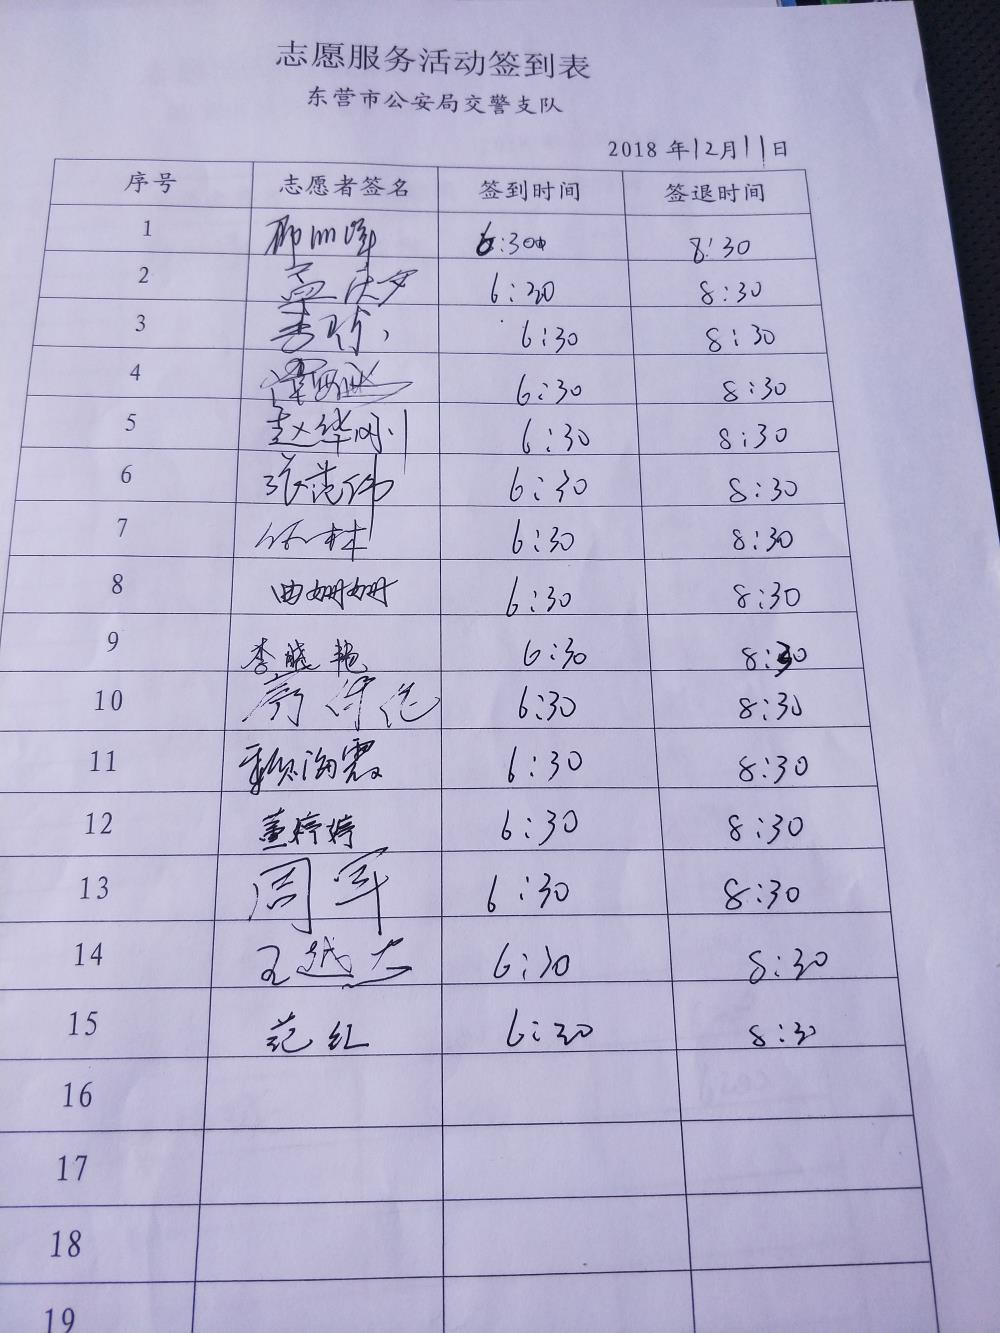 志愿服务活动签到表
东营市公安局交警支队
2018年12月11日
序号 志愿者签名 签到时间 签退时间
1 6:30 8:30
2 孟庆 6:30 8:30
3 李 6:30 8:30
4 6:30 8:30
5 赵华刚 6:30 8:30
6 张 伟 6:30 8:30
7 任林 6:30 8:30
8 曲姗姗 6:30 8:30
9 李晓艳 6:30 8:30
10 6:30 8:30
11 海霞 6:30 8:30
12 董婷婷 6:30 8:30
13 周军 6:30 8:30
14 王越 6:30 8:30
15 范红 6:30 8:30
16
17
18
19